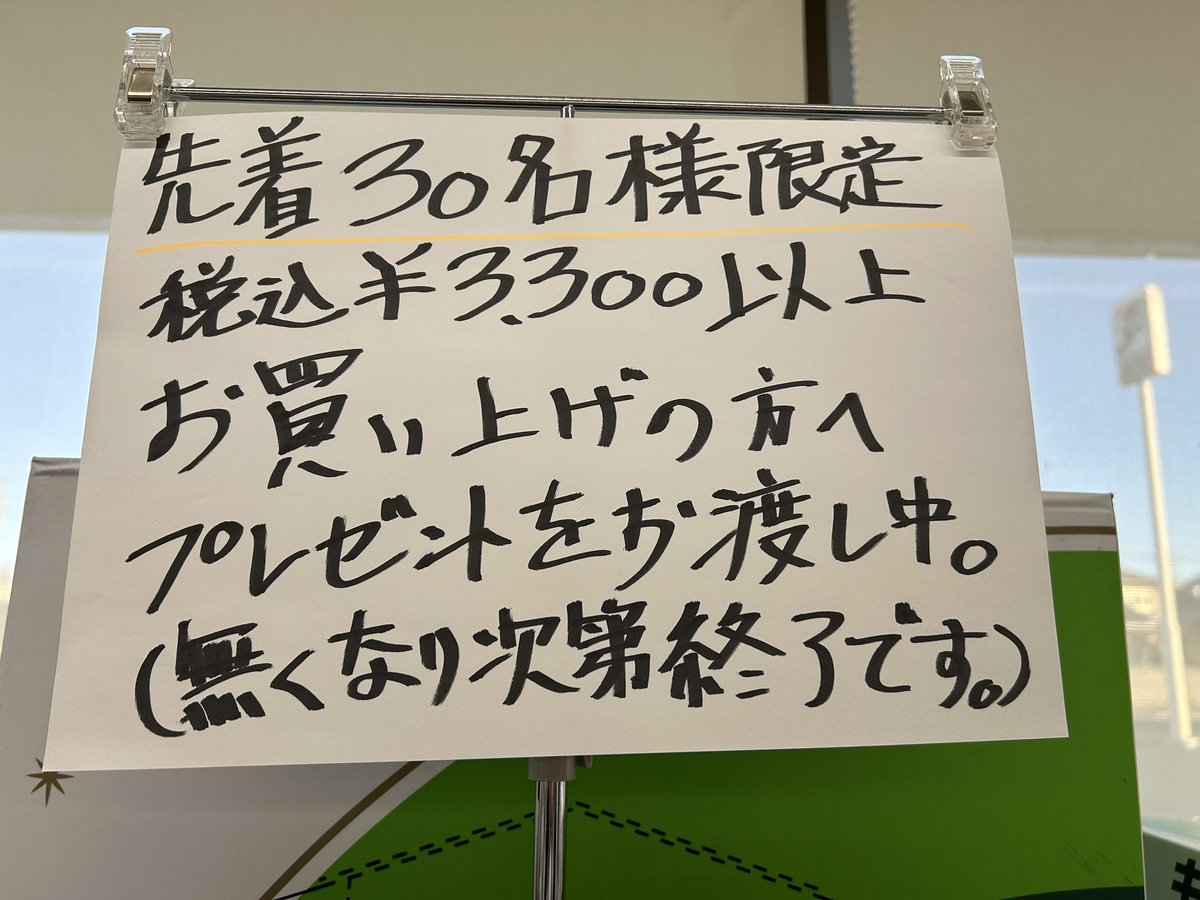 先着30名様限定
税込¥3.300以上
お買い上げの方へ
プレゼントをお渡し中。
(無くなり次第終了です。)